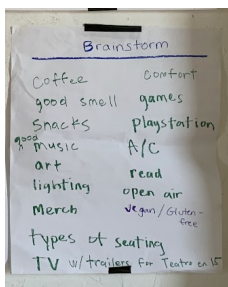 Brainstorm
coffee
good smell
snacks
good music
art
lighting
Merch
comfort
games
playstation
A/C
read
open air
vegan/Gluten-
free
types of seating
TV w/ trailers for Teatro en 15